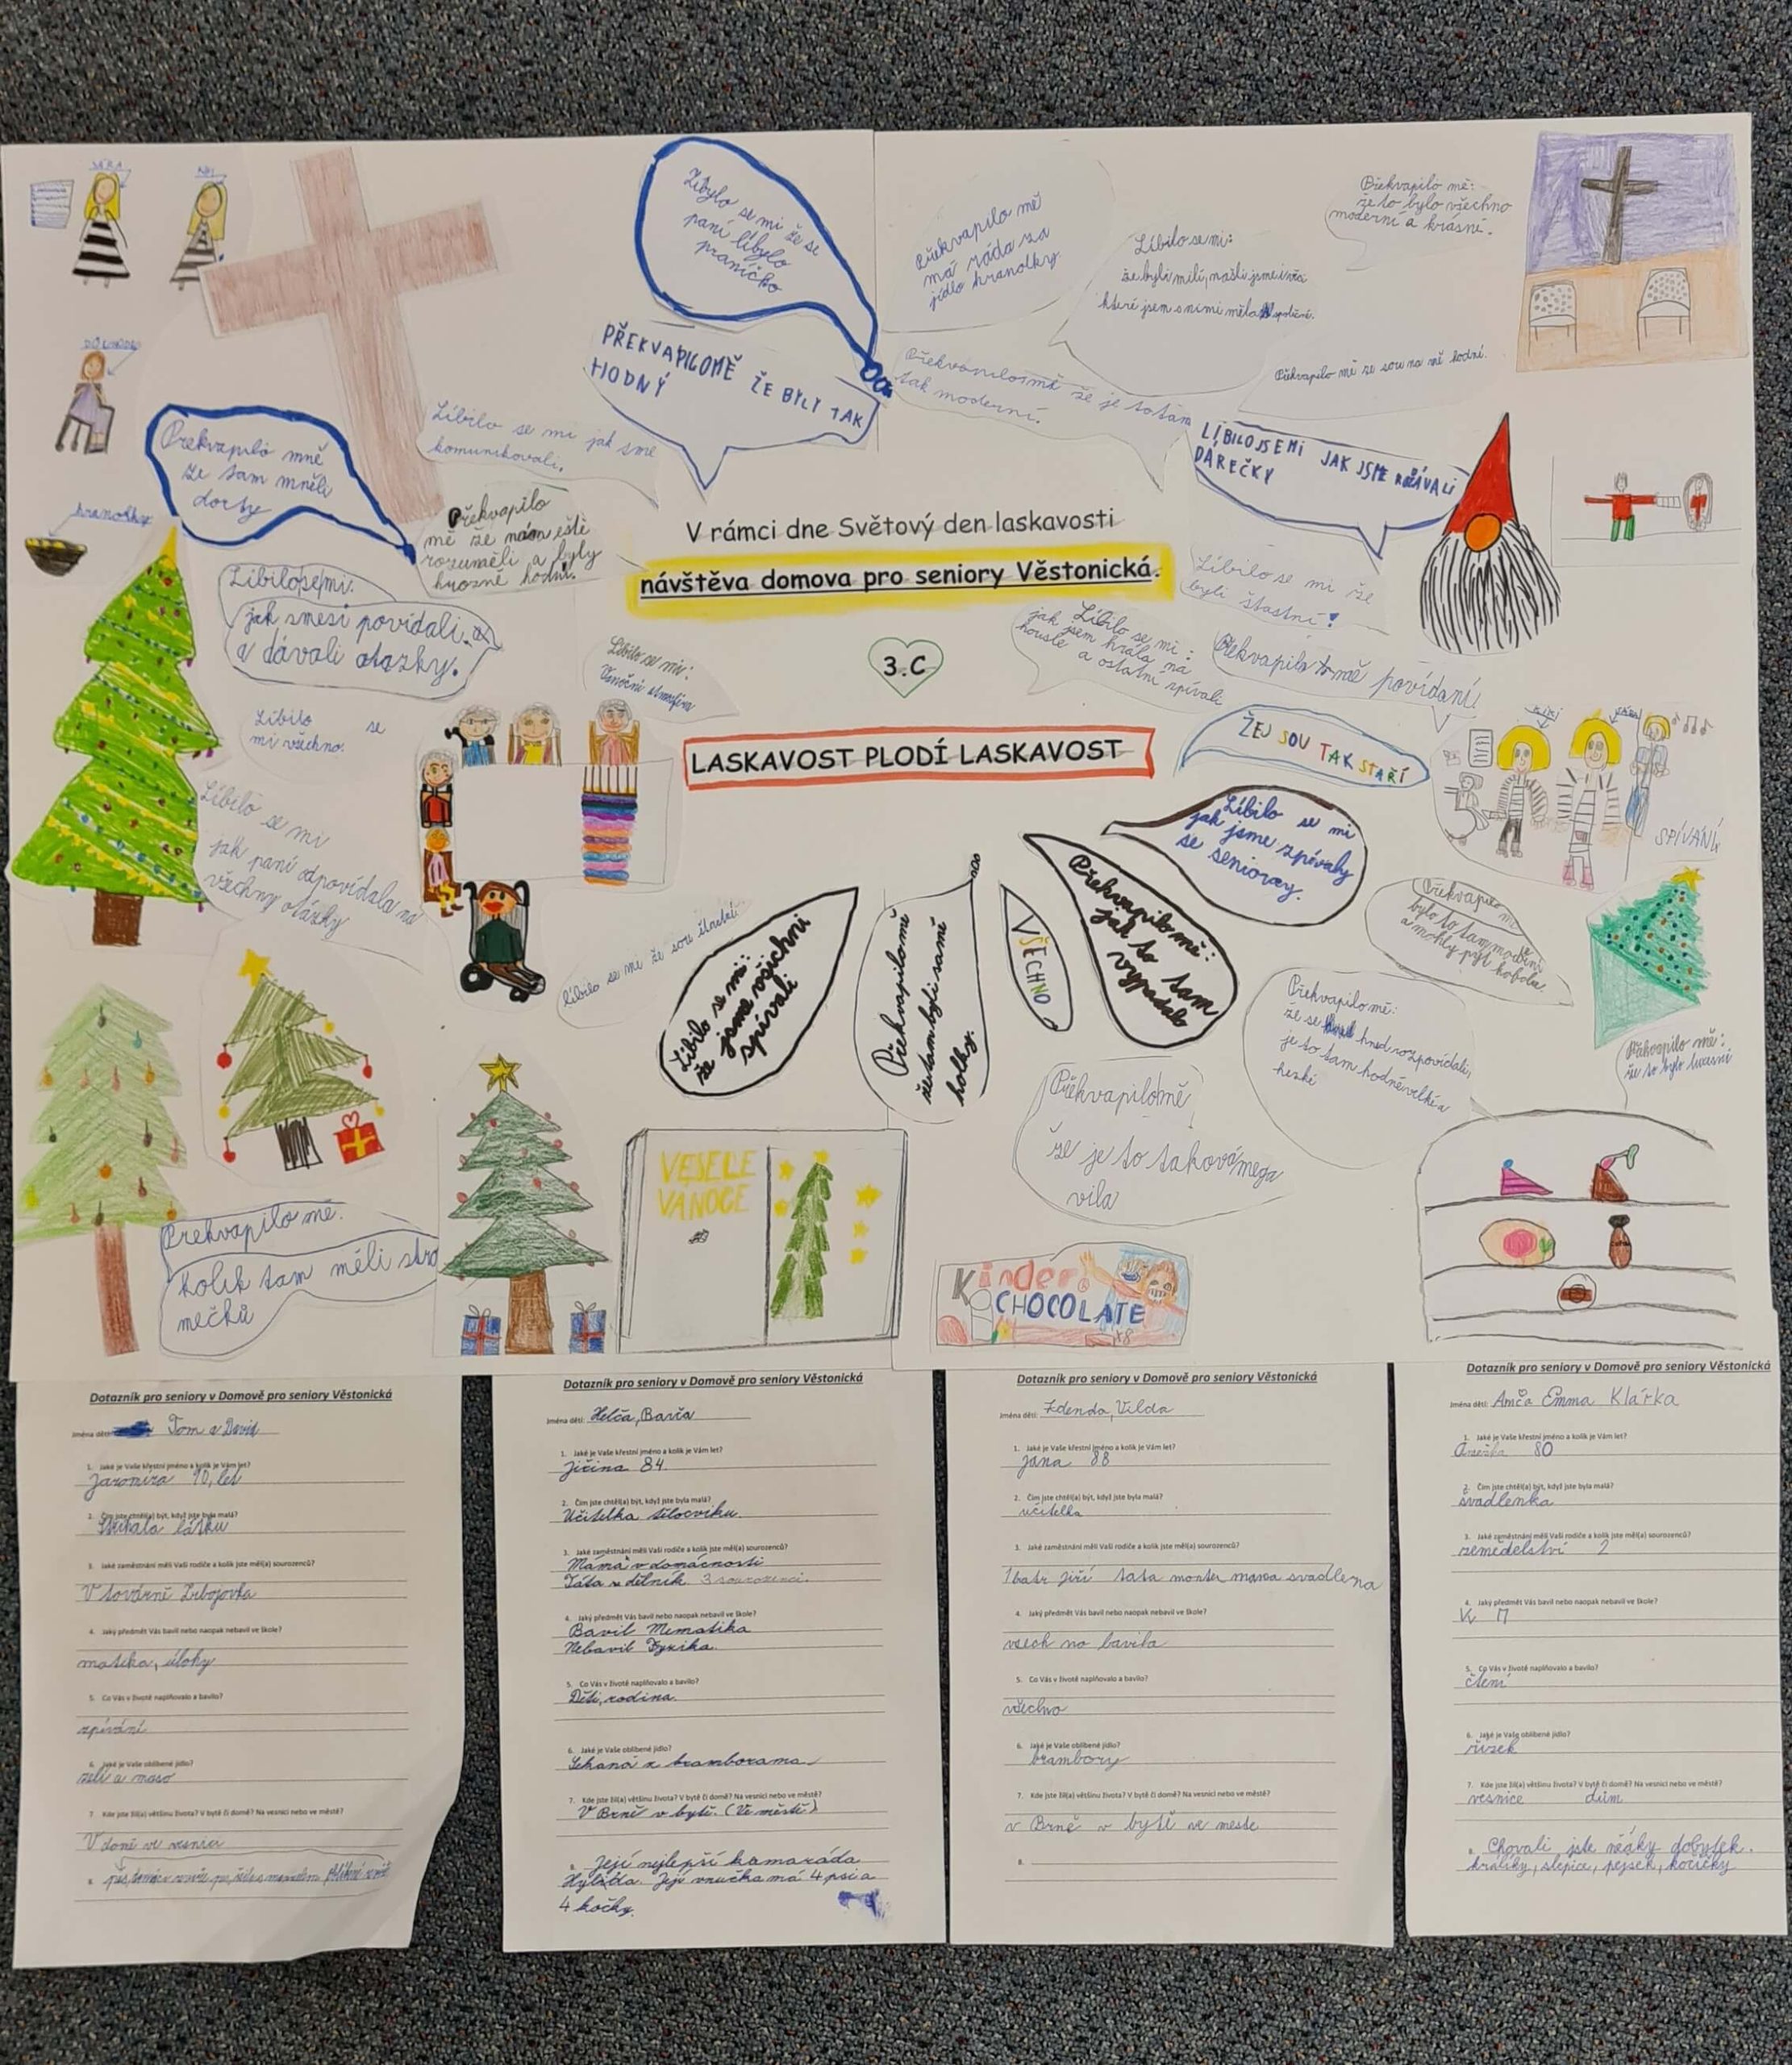 Líbylo se mi že se
paní líbylo
praníčko
Překvapilo mě
má ráda za
jídlo hranolky
Líbilo se mi:
že byli milí, našli jsme i
které jsem s nimi měla společné.
Překvapilo mě:
že to bylo všechno
moderní a krásné.
PŘEKVAPILOMĚ ŽE BYLI TAK
HODNÝ
Překvapilo mě že je to tam
tak moderní.
Překvapilo mě že sou na mě hodní.
Překvapilo mně
že tam mněli
dorty
Líbilo se mi jak sme
komunikovali.
LÍBILOJSEMI JAK JSME ROZÁVALI
DÁREČKY
hranolky
Překvapilo
mě že nám ešlě
rozuměli a byly
hrozně hodní.
V rámci dne Světový den laskavosti
návštěva domova pro seniory Věstonická.
3.C
LASKAVOST PLODÍ LASKAVOST
Líbilo se mi že
byli šťastní!
Líbilose mi:
jak smesi povídali
a dávali otazky.
Líbilo se mi:
Vánoční atmosféra
Líbilo se mi:
jak jsem hrála na
housle a ostatní spívali
Překvapilo mě povídaní
Líbilo se
mi všechno.
ŽEJ SOU TAK STAŘÍ
SPÍVÁNÍ
Líbilo se mi
jak paní odpovídala na
všechny otázky
Líbilo se mi
jak jsme zpívaly
se seniory.
líbilo se mi že sou
Líbilo se mi:
že jsme všichni
spívali
Překvapilo mě
že tam byli samé
holky.
VŠECHNO
Překvapilo mě:
jak to tam
vypadalo
Překvapilo mě
bylo to tam moderní
a mohly pýt kofola.
Překvapilo mě:
že se hned rozpovídali,
je to tam hodně velké a
hezké
Překvapilo mě:
že to bylo
Překvapilo mě
že je to taková mega
vila
Překvapilo mě.
kolik tam měli stro
mečků
VESELE
VANOCE
Kinder
CHOCOLATE
x8
Dotazník pro seniory v Domově pro seniory Věstonická
Jména dětí: Tom a David
1. Jaké je Vaše křestní jméno a kolik je Vám let?
Jaromíra 90, let
2. Čím jste chtěl(a) být, když jste byla malá?
látku
3. Jaké zaměstnání měli Vaši rodiče a kolik jste měl(a) sourozenců?
V továrně Zbrojovka
4. Jaký předmět Vás bavil nebo naopak nebavil ve škole?
matika, úlohy
5. Co Vás v životě naplňovalo a bavilo?
zpívání
6. Jaké je Vaše oblíbené jídlo?
zelí a maso
7. Kde jste žil(a) většinu života? V bytě či domě? Na vesnici nebo ve městě?
V domě ve vesnici
8.
Dotazník pro seniory v Domově pro seniory Věstonická
Jména dětí: Helča, Barča
1. Jaké je Vaše křestní jméno a kolik je Vám let?
Jiřina 84
2. Čím jste chtěl(a) být, když jste byla malá?
Učitelka tělocviku.
3. Jaké zaměstnání měli Vaši rodiče a kolik jste měl(a) sourozenců?
Máma v domácnosti
Táta dělník. 3 sourozenci.
4. Jaký předmět Vás bavil nebo naopak nebavil ve škole?
Bavil Mematika
Nebavil Fyzika.
5. Co Vás v životě naplňovalo a bavilo?
Děti, rodina.
6. Jaké je Vaše oblíbené jídlo?
Sekaná z bramborama
7. Kde jste žil(a) většinu života? V bytě či domě? Na vesnici nebo ve městě?
V Brně v bytě. (Ve městě)
8. Její nejlepší kamaráda
Její vnučka má 4 psi a
4 kočky.
Dotazník pro seniory v Domově pro seniory Věstonická
Jména dětí: Zdenda, Vilda
1. Jaké je Vaše křestní jméno a kolik je Vám let?
jana 88
2. Čím jste chtěl(a) být, když jste byla malá?
učitelka
3. Jaké zaměstnání měli Vaši rodiče a kolik jste měl(a) sourozenců?
1 batr jiří tata monter mama svadlena
4. Jaký předmět Vás bavil nebo naopak nebavil ve škole?
všech no bavila
5. Co Vás v životě naplňovalo a bavilo?
všechno
6. Jaké je Vaše oblíbené jídlo?
brambory
7. Kde jste žil(a) většinu života? V bytě či domě? Na vesnici nebo ve městě?
v Brně v bytě ve meste
8.
Dotazník pro seniory v Domově pro seniory Věstonická
Jména dětí: Anča Emma Klárka
1. Jaké je Vaše křestní jméno a kolik je Vám let?
Anežka 80
2. Čím jste chtěl(a) být, když jste byla malá?
švadlenka
3. Jaké zaměstnání měli Vaši rodiče a kolik jste měl(a) sourozenců?
zemědelství 2
4. Jaký předmět Vás bavil nebo naopak nebavil ve škole?
5. Co Vás v životě naplňovalo a bavilo?
čtení
6. Jaké je Vaše oblíbené jídlo?
řízek
7. Kde jste žil(a) většinu života? V bytě či domě? Na vesnici nebo ve městě?
vesnice dům
8. Chovali jste ňáky dobytek.
kraliky, slepice, pejsek, kočičky